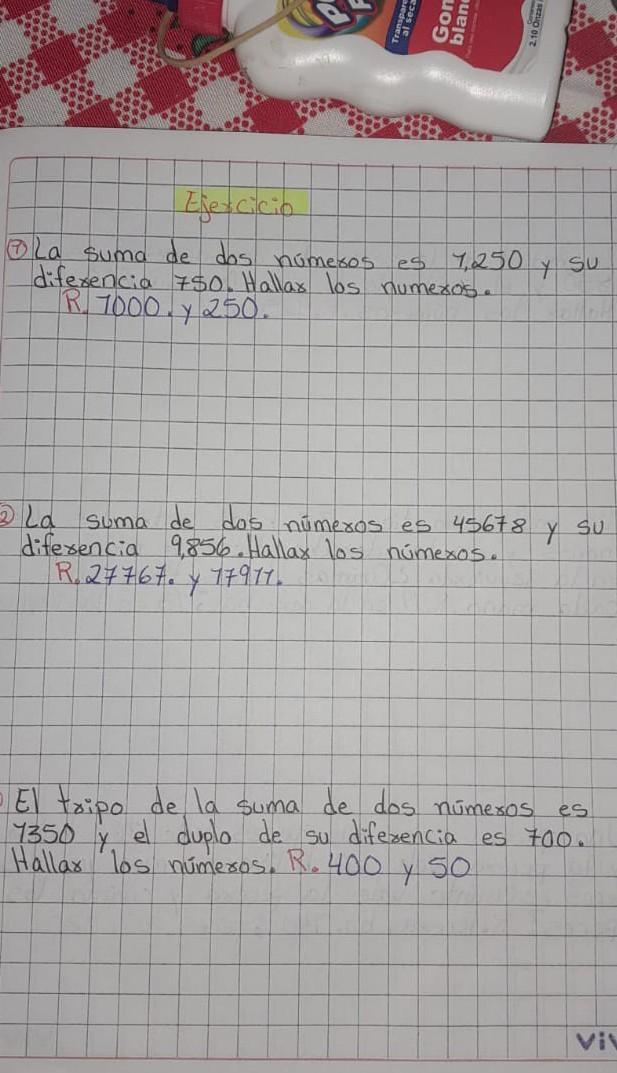 Transpare
al seca
Gom
blanc
2.10 Onzas
Ejercicio
① La suma de dos números es 1,250 y su
diferencia 750. Hallar los numeros.
R. 1000. y 250.
② La suma de dos números es 45678 y su
diferencia 9,856. Hallar los números.
R. 27767. y 17911.
El tripo de la suma de dos números es
1350 y el duplo de su diferencia es 700.
Hallar los números. R. 400 y 50